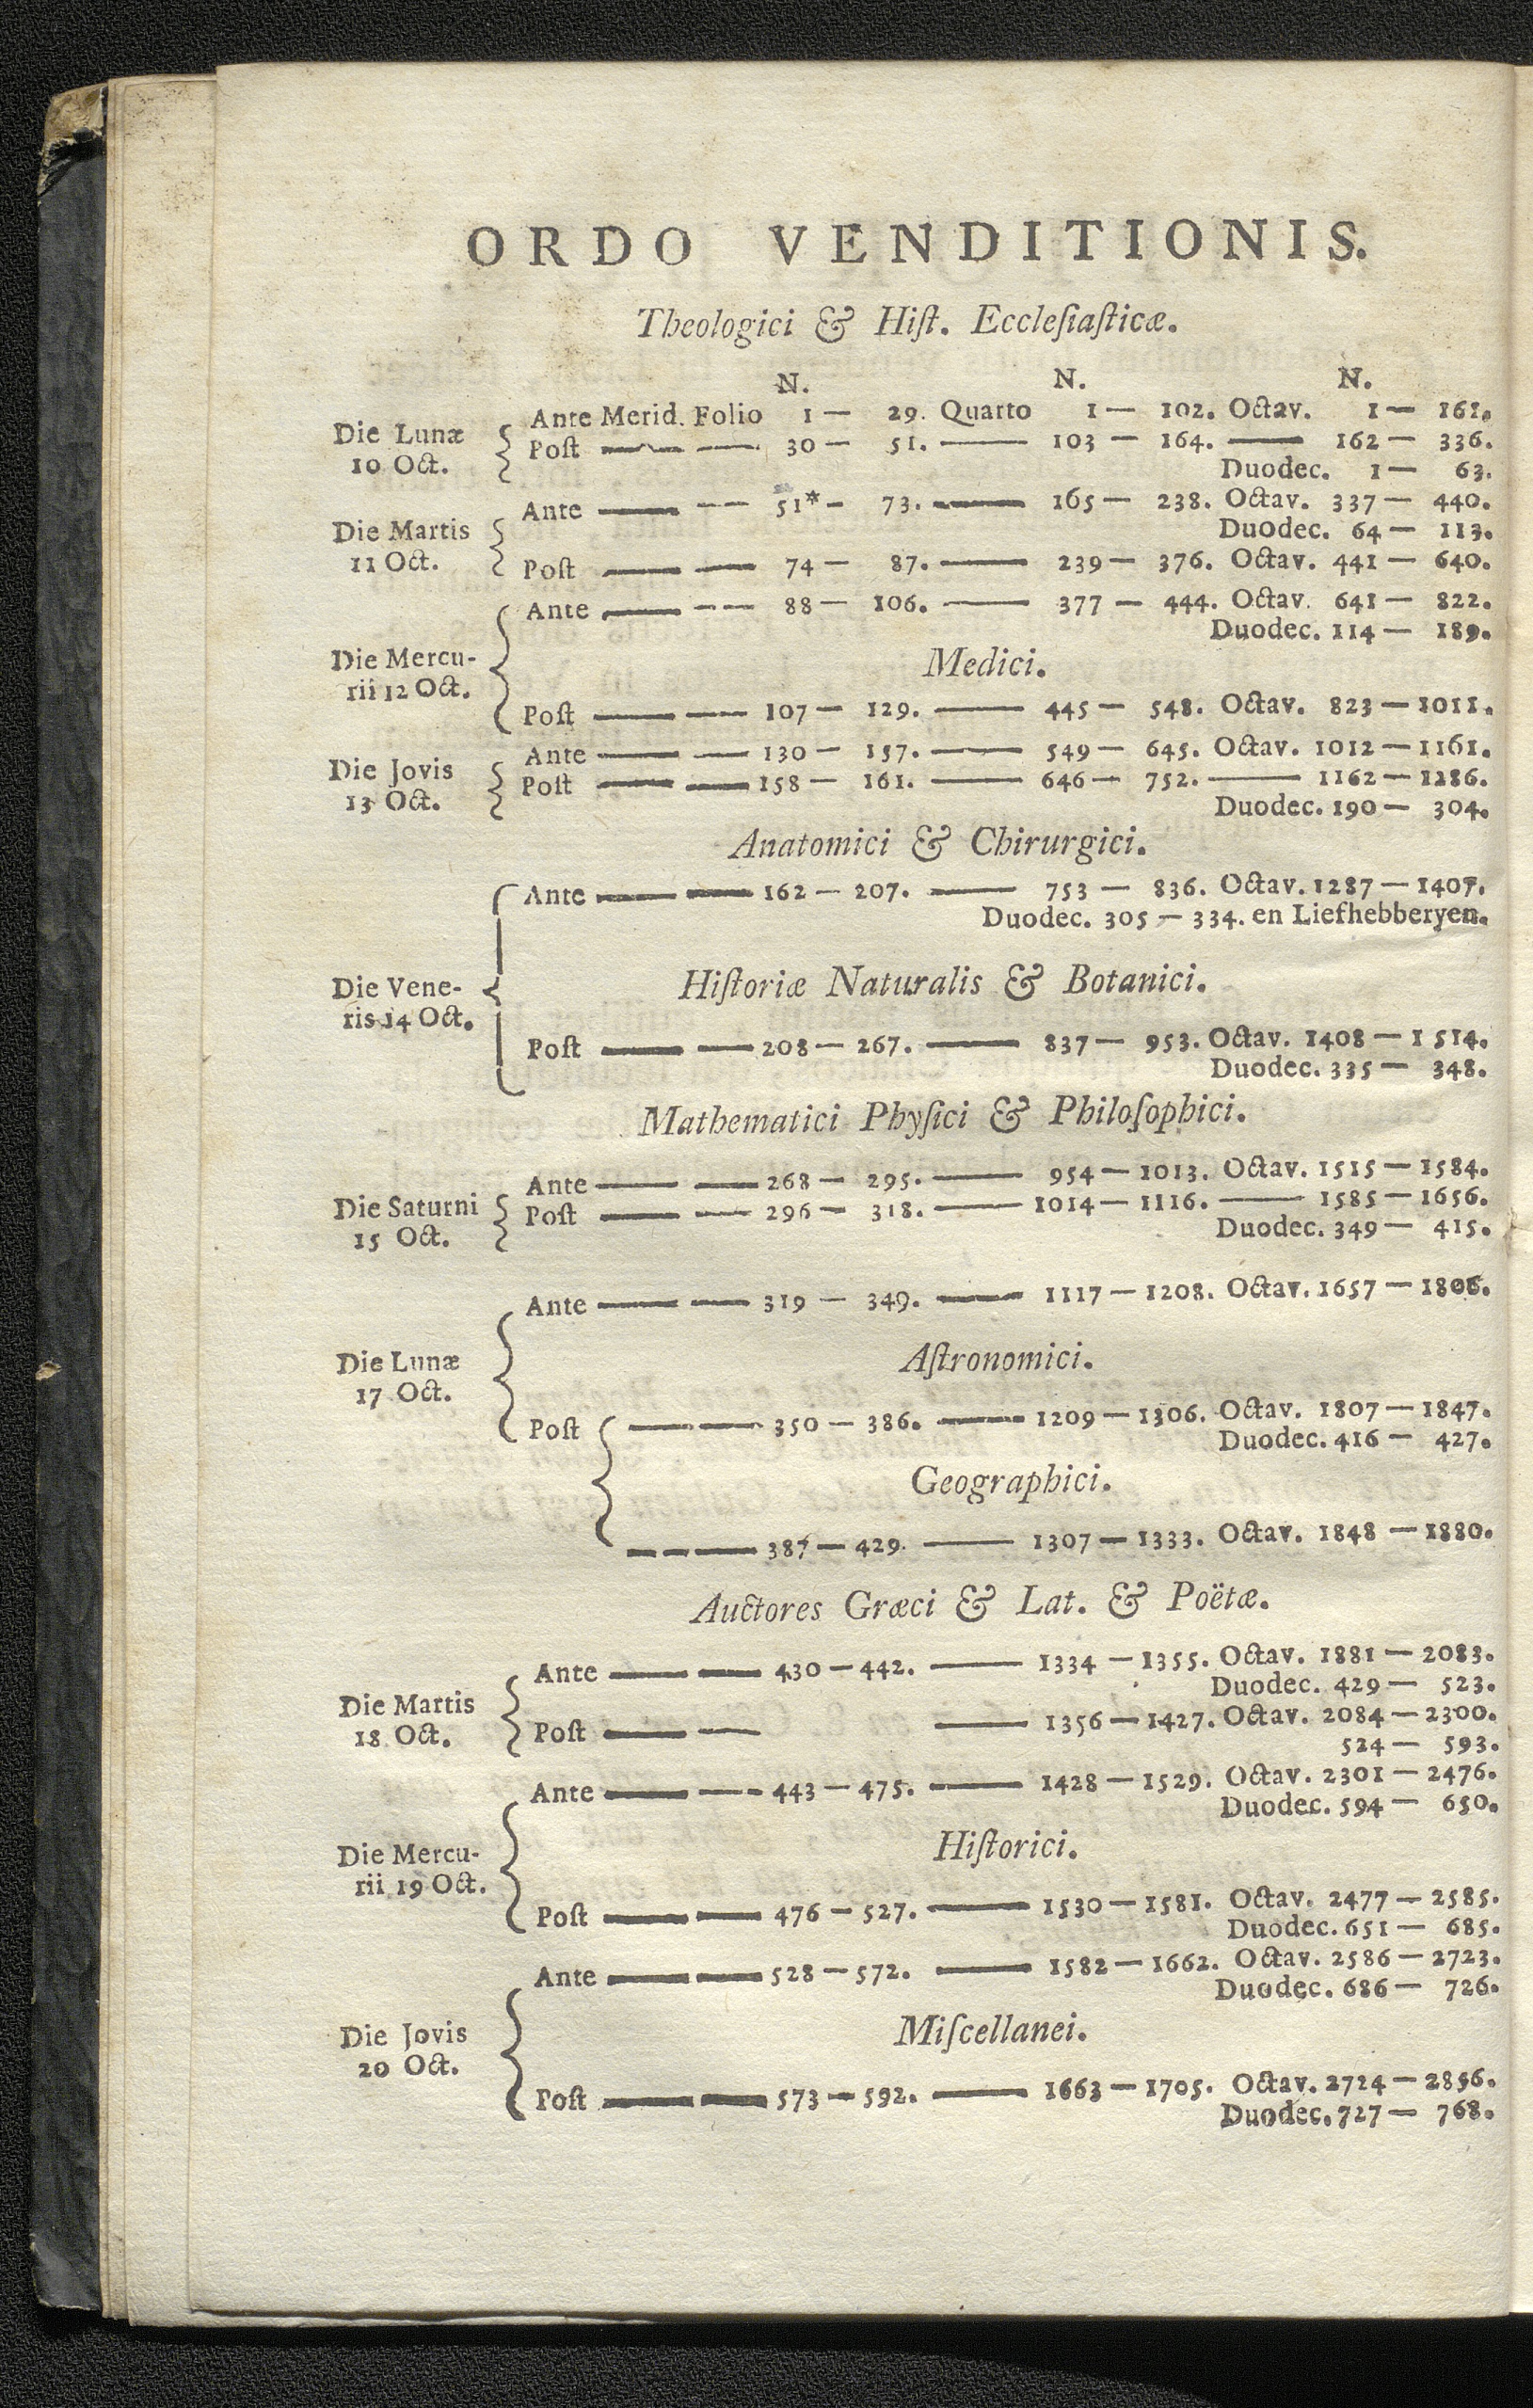 ORDO VENDITIONIS.
Theologici & Hiſt. Eccleſiaſticæ.
N. N. N.
Die Lunæ 10 Oct. Ante Merid. Folio 1 — 29. Quarto 1 — 102. Octav. 1 — 161.
Poſt — — 30 — 51. — 103 — 164. — 162 — 336.
Duodec. 1 — 63.
Die Martis 11 Oct. Ante — — 51* — 73. — 165 — 238. Octav. 337 — 440.
Duodec. 64 — 113.
Poſt — — 74 — 87. — 239 — 376. Octav. 441 — 640.
Ante — — 88 — 106. — 377 — 444. Octav. 641 — 822.
Duodec. 114 — 189.
Die Mercu-
rii 12 Oct.
Medici.
Poſt — — 107 — 129. — 445 — 548. Octav. 823 — 1011.
Die Jovis 13 Oct. Ante — — 130 — 157. — 549 — 645. Octav. 1012 — 1161.
Poſt — — 158 — 161. — 646 — 752. — 1162 — 1286.
Duodec. 190 — 304.
Anatomici & Chirurgici.
Ante — — 162 — 207. — 753 — 836. Octav. 1287 — 1407.
Duodec. 305 — 334. en Liefhebberyen.
Die Vene-
ris 14 Oct.
Hiſtoriæ Naturalis & Botanici.
Poſt — — 208 — 267. — 837 — 953. Octav. 1408 — 1514.
Duodec. 335 — 348.
Mathematici Phyſici & Philoſophici.
Die Saturni 15 Oct. Ante — — 268 — 295. — 954 — 1013. Octav. 1515 — 1584.
Poſt — — 296 — 318. — 1014 — 1116. — 1585 — 1656.
Duodec. 349 — 415.
Ante — — 319 — 349. — 1117 — 1208. Octav. 1657 — 1806.
Die Lunæ
17 Oct.
Aſtronomici.
Poſt — — 350 — 386. — 1209 — 1306. Octav. 1807 — 1847.
Duodec. 416 — 427.
Geographici.
— — — 387 — 429. — 1307 — 1333. Octav. 1848 — 1880.
Auctores Græci & Lat. & Poëtæ.
Die Martis 18 Oct. Ante — — 430 — 442. — 1334 — 1355. Octav. 1881 — 2083.
Duodec. 429 — 523.
Poſt — — — 1356 — 1427. Octav. 2084 — 2300.
524 — 593.
Ante — — 443 — 475. — 1428 — 1529. Octav. 2301 — 2476.
Duodec. 594 — 650.
Die Mercu-
rii 19 Oct.
Hiſtorici.
Poſt — — 476 — 527. — 1530 — 1581. Octav. 2477 — 2585.
Duodec. 651 — 685.
Ante — — 528 — 572. — 1582 — 1662. Octav. 2586 — 2723.
Duodec. 686 — 726.
Die Jovis
20 Oct.
Miſcellanei.
Poſt — — 573 — 592. — 1663 — 1705. Octav. 2724 — 2856.
Duodec. 727 — 768.